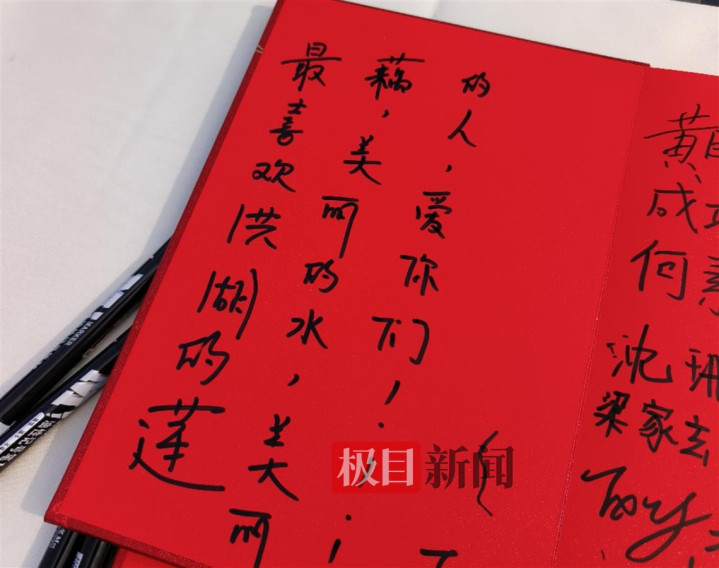 最喜欢洪湖的莲
藕，美丽的水，美丽
的人，爱你们！
黄
成
何
沈
梁家
极目新闻
MARKER